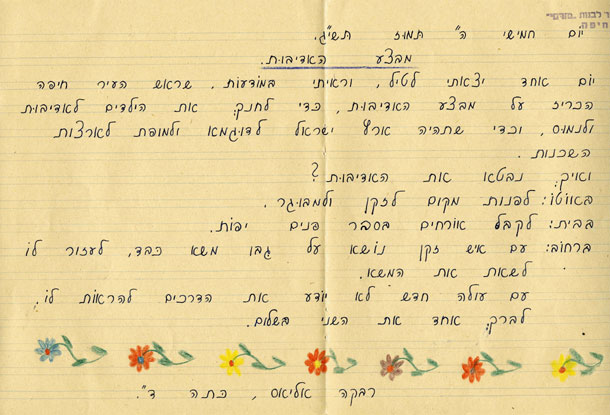 ר לבנות "מזרחי"
חיפה
יום חמישי ה" תמוז תשי"ג.
מבצע האדיבות.
יום אחד יצאתי לטיל, וראיתי במודעות, שראש העיר חיפה
הכריז על מבצע האדיבות, כדי לחנך את הילדים לאדיבות
ולנמוס, וכדי שתהיה ארץ ישראל לדוגמא ולמופת לארצות
השכנות.
ואיך נבטא את האדיבות?
באוטו: לפנות מקום לזקן ולמבוגר.
בבית: לקבל אורחים בסבר פנים יפות.
ברחוב: עם איש זקן נושא על גבו משא כבד, לעזור לו
לשאת את המשא.
עם עולה חדש לא יודע את הדרכים להראות לו.
לברך אחד את השני בשלום.
רבקה אליאס, כתה ד".